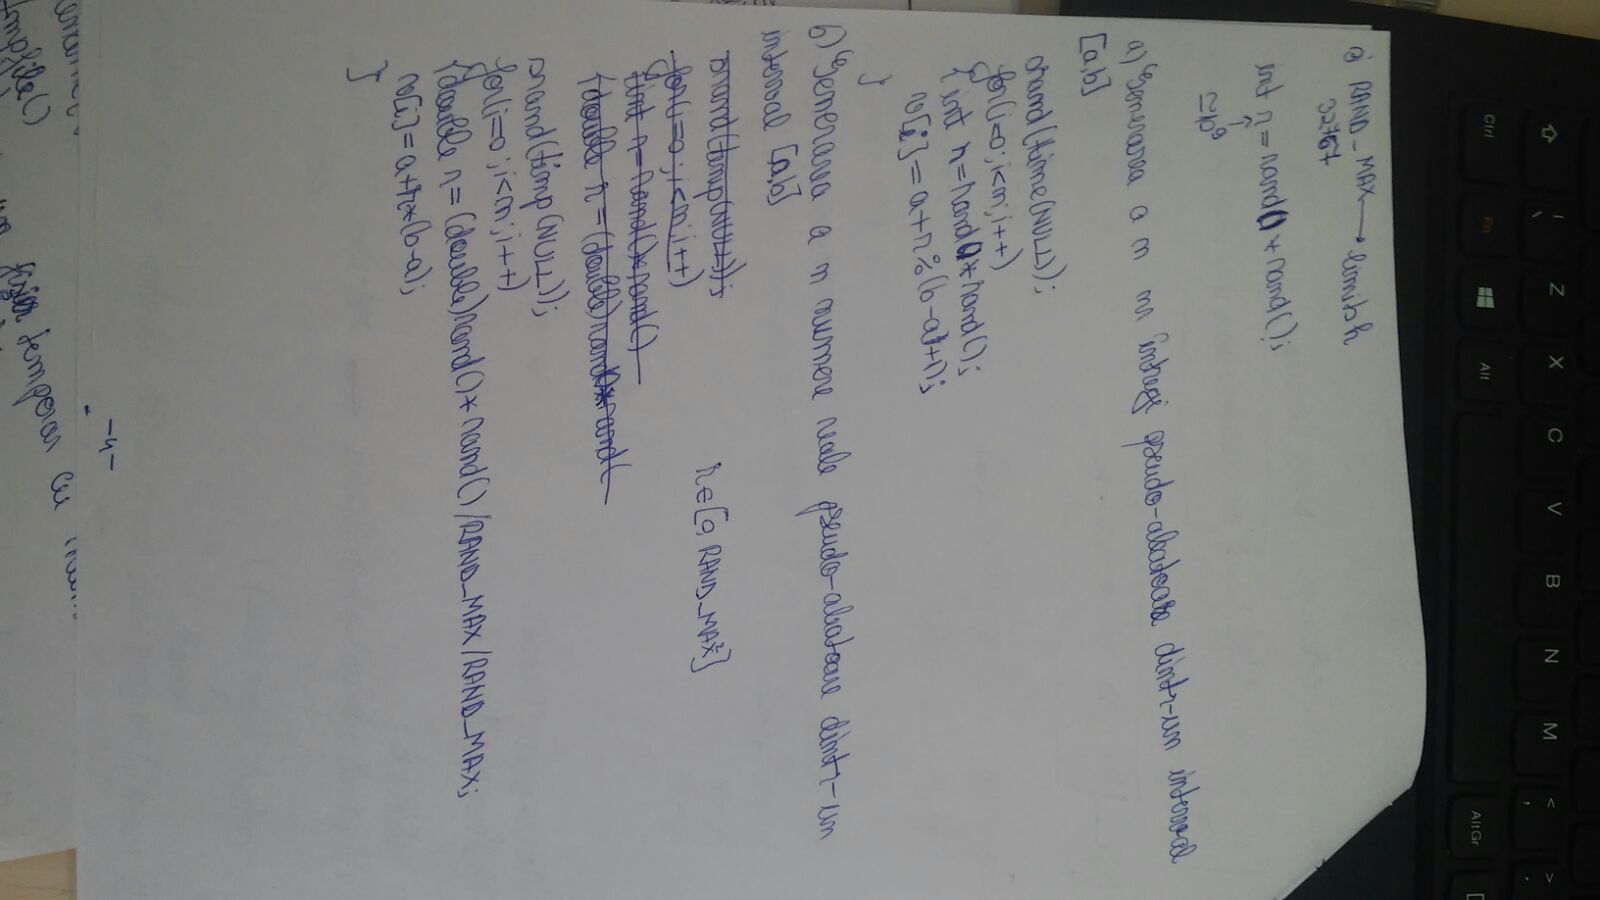 Z X C V B N M < >
,
.
Ctrl Fn Alt AltGr
RAND_MAX → limită
32767
int r=rand()*rand();
↑
≃10⁹
a) Generarea a n nr întregi pseudo-aleatoare dintr-un interval
[a,b]
srand(time(NULL));
for(i=0;i<n;i++)
{int r=rand()*rand();
v[i]=a+r%(b-a+1);
}
b) Generarea a n numere reale pseudo-aleatoare dintr-un
interval [a,b]
srand(timp(NULL));
r∈[0, RAND_MAX²]
for(i=0;i<n;i++)
{int r=rand()*rand()
{double r=(double)rand()*rand(
srand(timp(NULL));
for(i=0;i<n;i++)
{double r=(double)rand()*rand()/RAND_MAX/RAND_MAX;
v[i]=a+r*(b-a);
}
-4-
tmpfile()
un fișier temporar cu